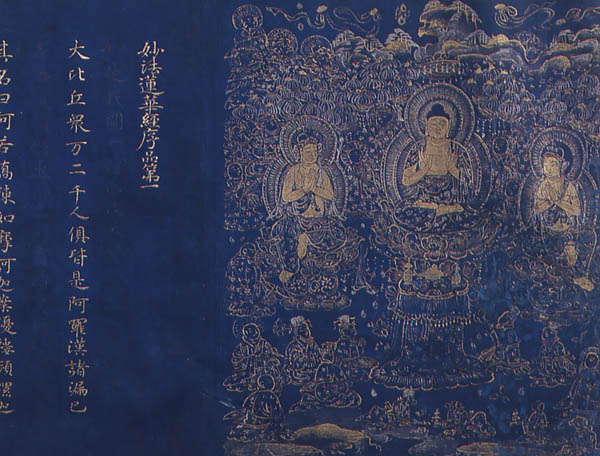 妙法蓮華經序品第一
大比丘衆万二千人俱皆是阿羅漢諸漏已
其名曰阿若憍陳如摩訶迦葉優樓頻螺迦